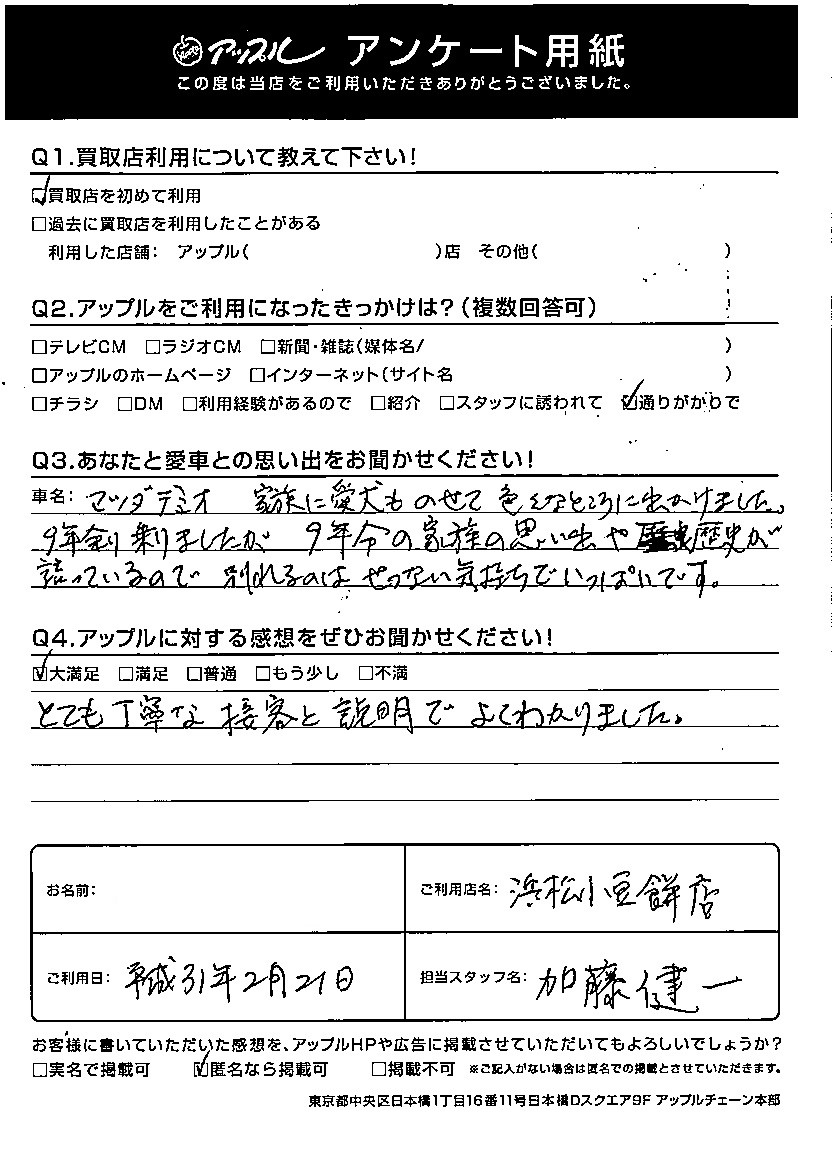 アップル アンケート用紙
この度は当店をご利用いただきありがとうございました。
Q1.買取店利用について教えて下さい!
☑買取店を初めて利用
□過去に買取店を利用したことがある
利用した店舗: アップル( )店 その他( )
Q2.アップルをご利用になったきっかけは?(複数回答可)
□テレビCM □ラジオCM □新聞・雑誌(媒体名/ )
□アップルのホームページ □インターネット(サイト名 )
□チラシ □DM □利用経験があるので □紹介 □スタッフに誘われて ☑通りがかりで
Q3.あなたと愛車との思い出をお聞かせください!
車名: マツダデミオ 家族に愛犬ものせて色々なところに出かけました。
9年乗りましたが 9年分の家族の思い出や歴史が
詰っているので 別れるのは せつない気持ちでいっぱいです。
Q4.アップルに対する感想をぜひお聞かせください!
☑大満足 □満足 □普通 □もう少し □不満
とても丁寧な接客と説明でよくわかりました。
お名前:
ご利用店名: 浜松小豆餅店
ご利用日: 平成31年2月21日
担当スタッフ名: 加藤健一
お客様に書いていただいた感想を、アップルHPや広告に掲載させていただいてもよろしいでしょうか?
□実名で掲載可 ☑匿名なら掲載可 □掲載不可 ※ご記入がない場合は匿名での掲載とさせていただきます。
東京都中央区日本橋1丁目16番11号日本橋Dスクエア9F アップルチェーン本部